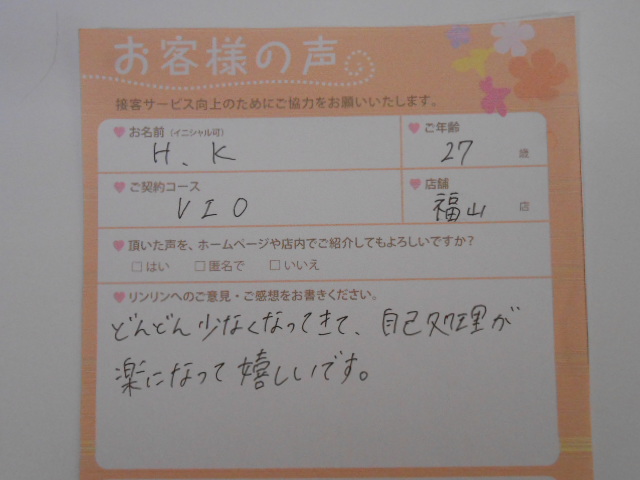 お客様の声
接客サービス向上のためにご協力をお願いいたします。
お名前(イニシャル可)
H.K
ご年齢
27 歳
ご契約コース
VIO
店舗
福山 店
頂いた声を、ホームページや店内でご紹介してもよろしいですか?
□はい □匿名で □いいえ
リンリンへのご意見・ご感想をお書きください。
どんどん少なくなってきて、自己処理が
楽になって嬉しいです。